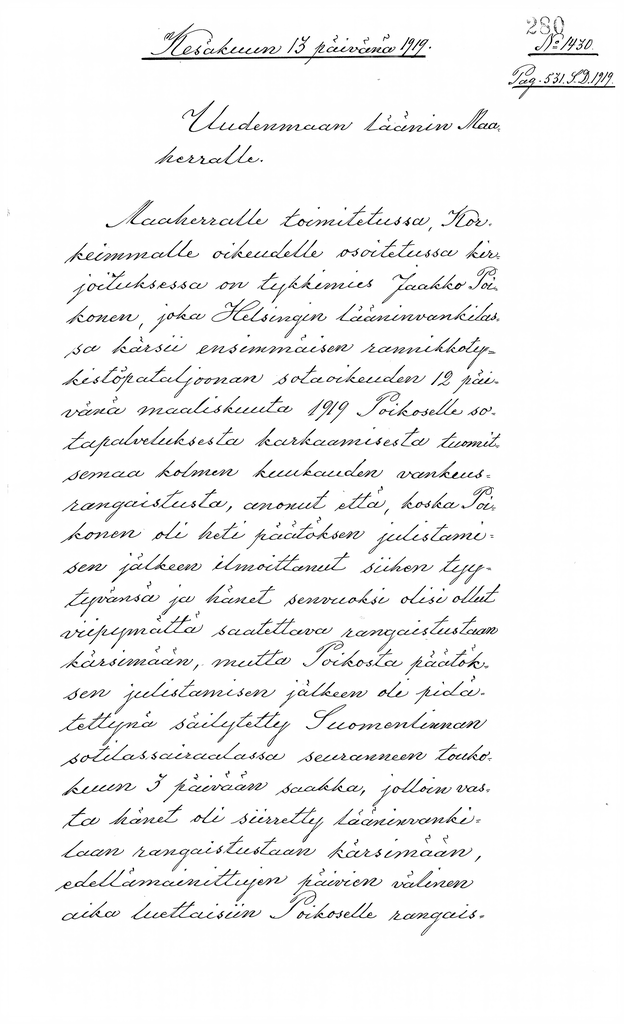 280
Kesäkuun 13 päivänä 1919.
No 1430.
Pag. 531. S.D. 1919.
Uudenmaan läänin Maa-
herralle.
Maaherralle toimitetussa, Kor-
keimmalle oikeudelle osoitetussa kir-
joituksessa on tykkimies Jaakko Poi-
konen, joka Helsingin lääninvankilas-
sa kärsii ensimmäisen rannikkoty-
kistöpataljoonan sotaoikeuden 12 päi-
vänä maaliskuuta 1919 Poikoselle so-
tapalveluksesta karkaamisesta tuomit-
semaa kolmen kuukauden vankeus-
rangaistusta, anonut että, koska Poi-
konen oli heti päätöksen julistami-
sen jälkeen ilmoittanut siihen tyy-
tyvänsä ja hänet senvuoksi olisi ollut
viipymättä saatettava rangaistustaan
kärsimään, mutta Poikosta päätök-
sen julistamisen jälkeen oli pidä-
tettynä säilytetty Suomenlinnan
sotilassairaalassa seuranneen touko-
kuun 3 päivään saakka, jolloin vas-
ta hänet oli siirretty lääninvanki-
laan rangaistustaan kärsimään,
edellämainittujen päivien välinen
aika luettaisiin Poikoselle rangais-